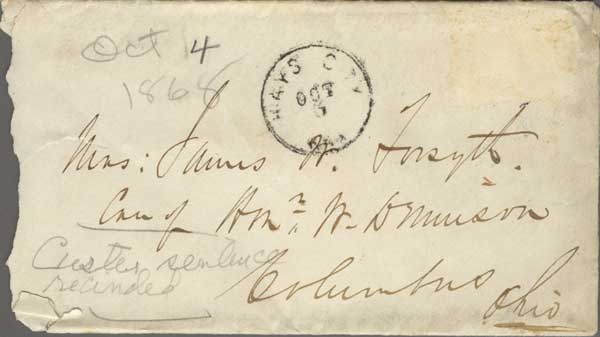 Oct 4
1868
HAYS CITY
OCT
5
Mrs: James W. Forsyth.
Care of Hon. W. Dennison
Custer sentence
recinded
Columbus
Ohio